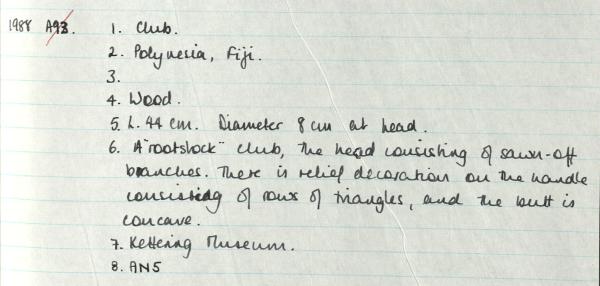 1988 A93. 1. Club.
2. Polynesia, Fiji.
3.
4. Wood.
5. L. 44 cm. Diameter 8 cm at head.
6. A "rootstock" club, the head consisting of sawn-off
branches. There is relief decoration on the handle
consisting of rows of triangles, and the butt is
concave.
7. Kettering Museum.
8. AN5